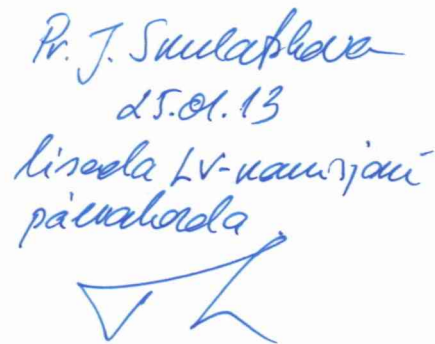 Pr. J. Smulatshova
25.01.13
lisada LV-komisjoni
päevakorda